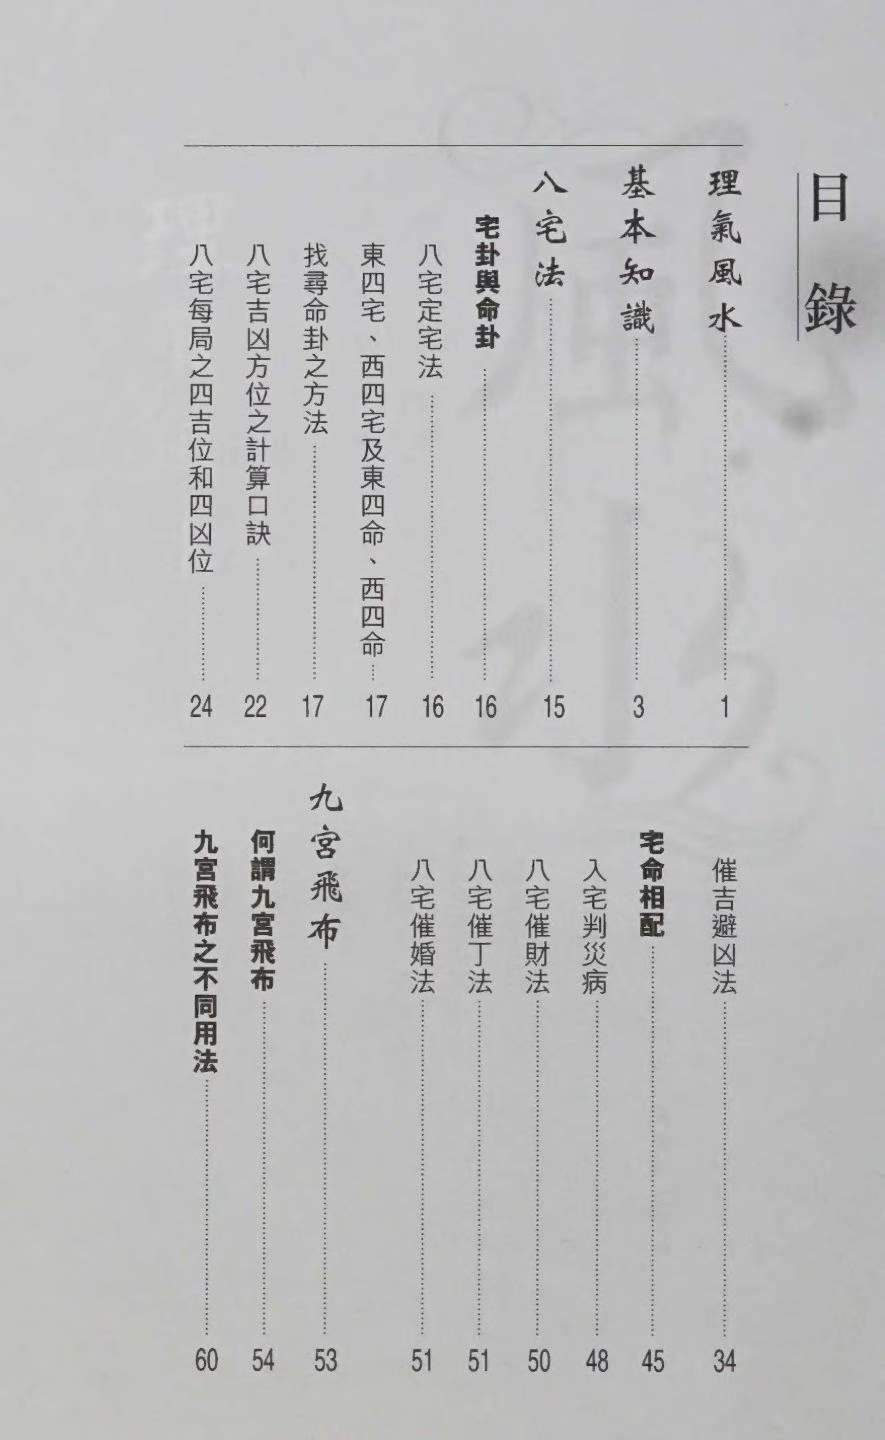 目錄
理氣風水……1
基本知識……3
八宅法……15
宅卦與命卦……16
八宅定宅法……16
東四宅、西四宅及東四命、西四命…17
找尋命卦之方法……17
八宅吉凶方位之計算口訣……22
八宅每局之四吉位和四凶位……24
催吉避凶法……34
宅命相配……45
入宅判災病……48
八宅催財法……50
八宅催丁法……51
八宅催婚法……51
九宮飛布……53
何謂九宮飛布……54
九宮飛布之不同用法……60